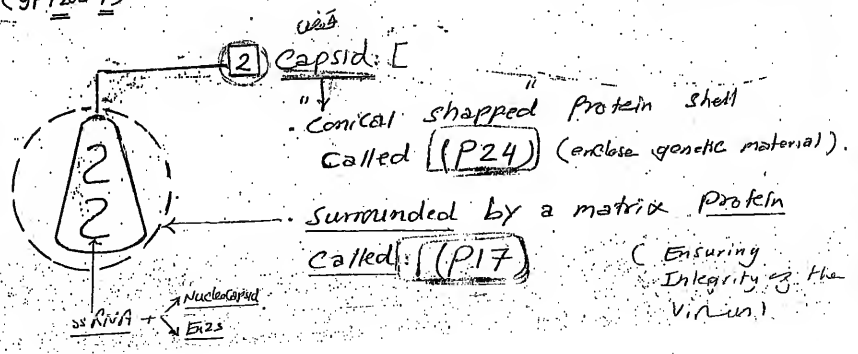 2 Capsid: [
" Conical shapped Protein shell "
called (P24) (enclose genetic material).
. Surrounded by a matrix Protein
called: (P17)
( Ensuring
Integrity of the
Virus)
ss RNA + Nucleocapsid